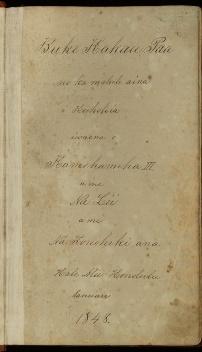 Buke Kakau Paa
no ka mahele aina
i Hooholoia
iwaena o
Kamehameha III
a me
Na Lii
a me
Na Konohiki ana
Hale Alii Honolulu
Ianuari
1848.